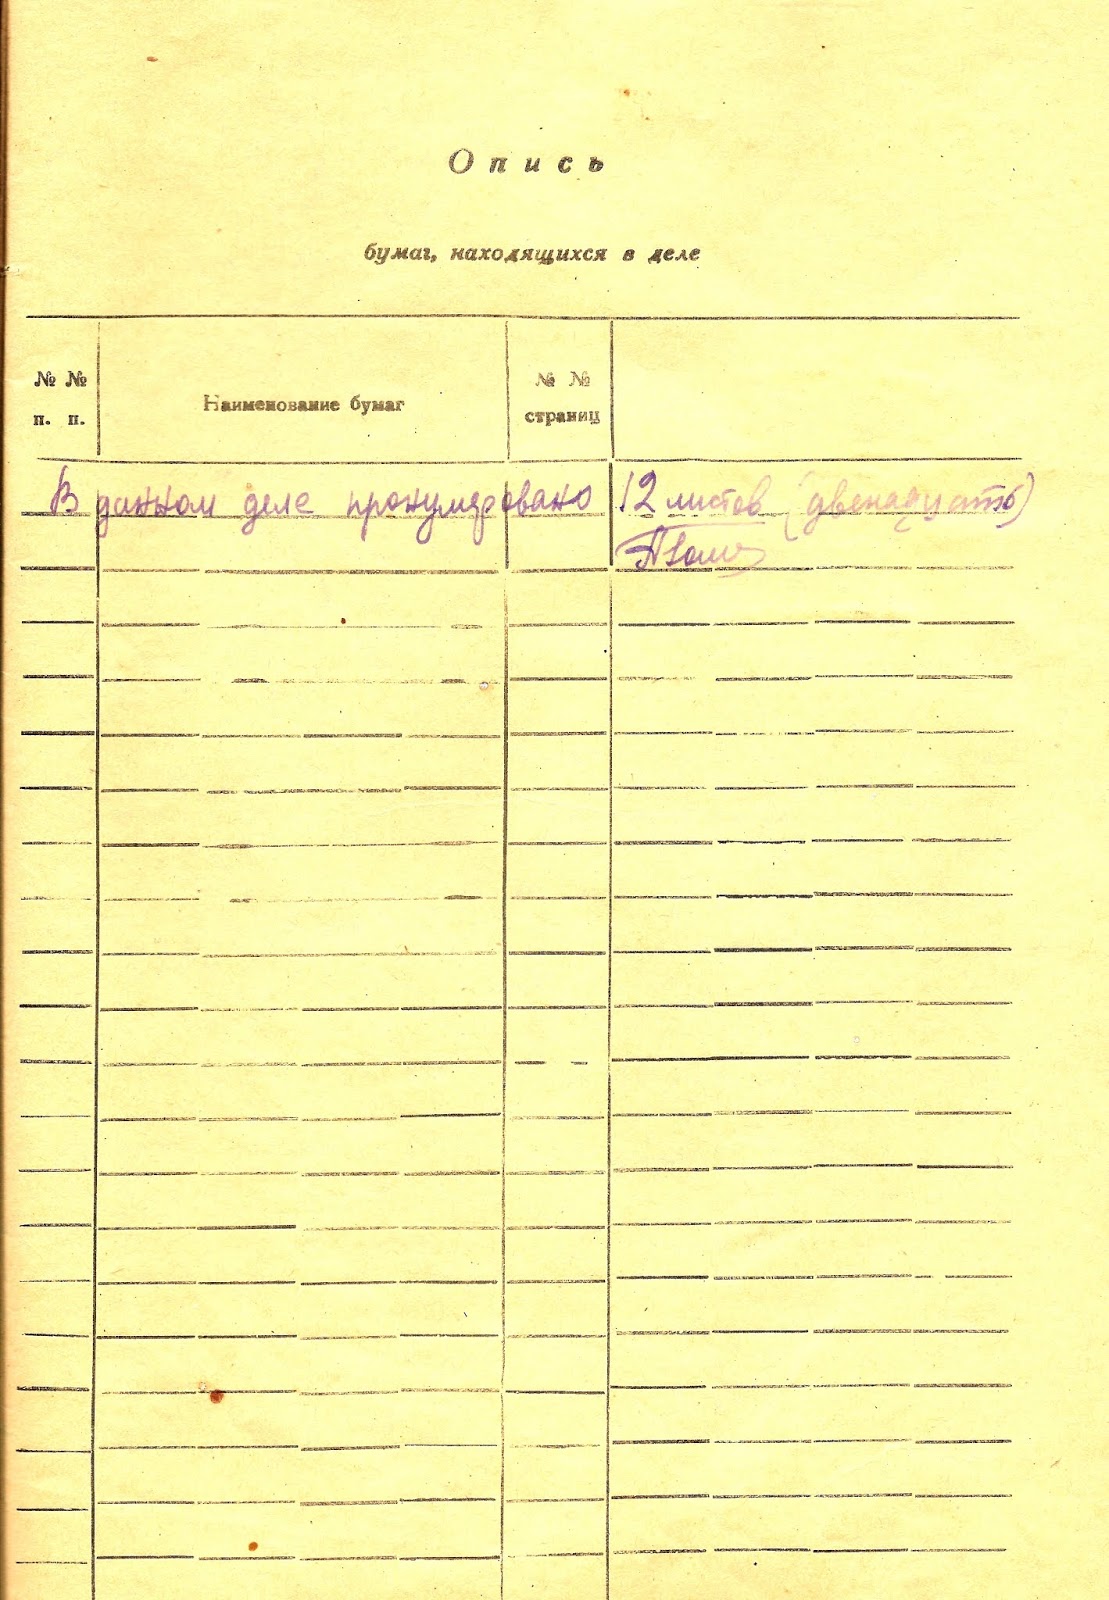 Опись
бумаг, находящихся в деле
№ № Наименование бумаг № №
п. п. страниц
В данном деле пронумеровано 12 листов (двенадцать)